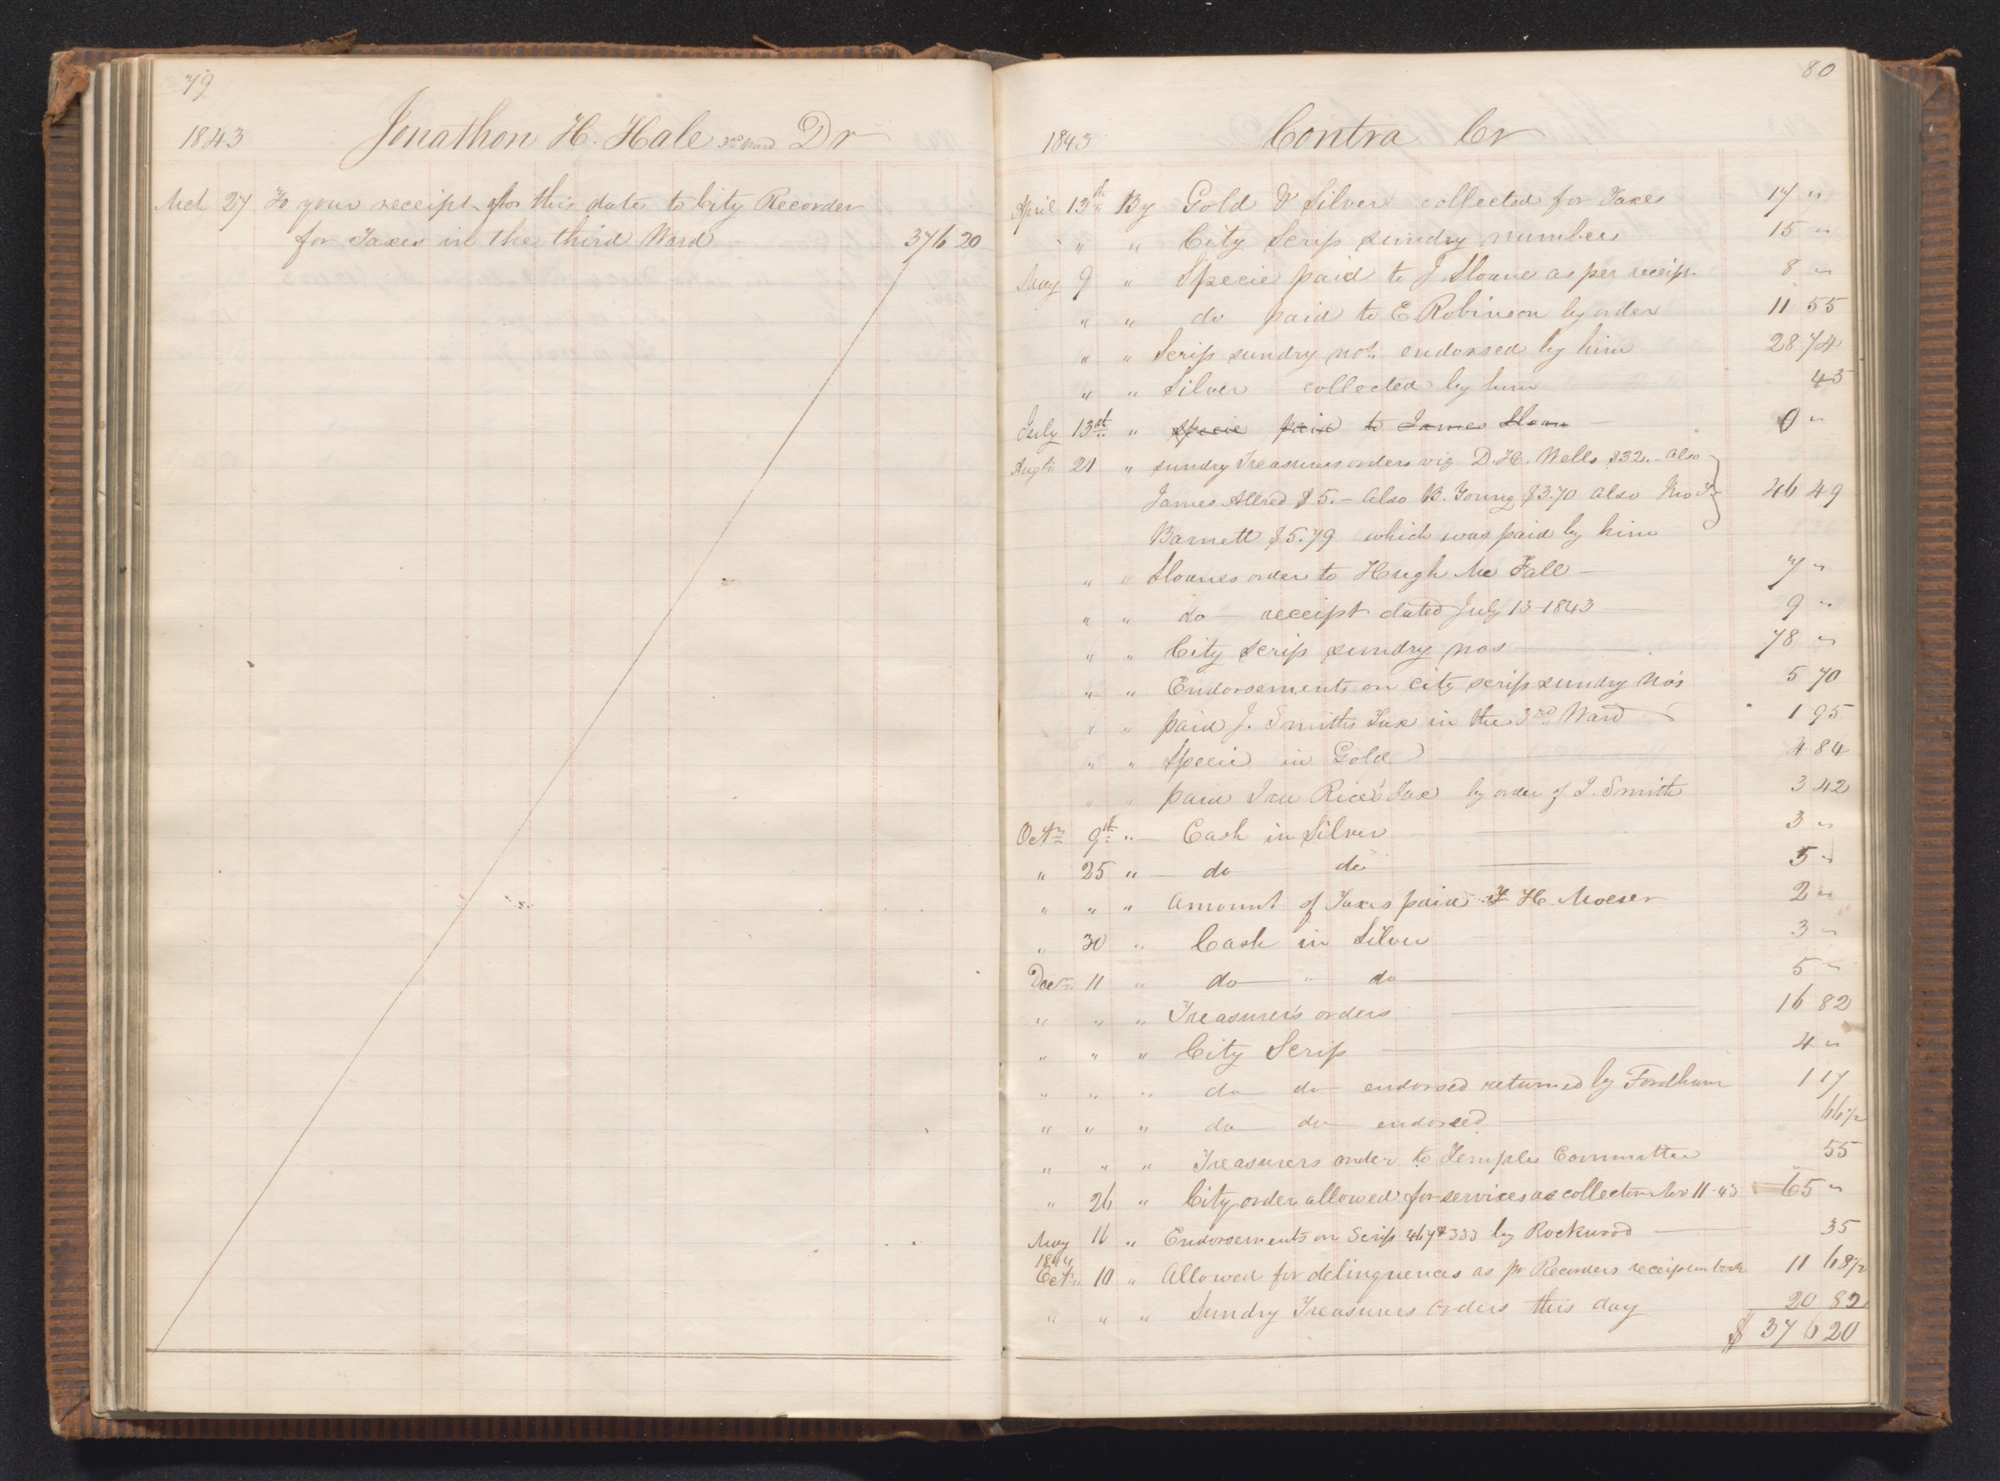 79
1843 Jonathon H. Hale 3rd Ward Dr
Mch 27 To your receipt for this date to City Recorder
for Taxes in the third Ward 376 20
80
1843 Contra Cr
April 13th By Gold & Silver collected for Taxes 17 "
" " City Scrip sundry numbers 15 "
May 9 " Specie paid to J. Sloane as per receipt 8 "
" " do paid to E. Robinson by order 11 55
" " Scrip sundry nos. endorsed by him 28 74
" " Silver collected by him 45
July 13th " specie paid to James Sloan 0 "
Augt 21 " sundry Treasurers orders viz D. H. Wells $32.- also
James Allred $5.- also B. Young $3.70 also Jno T. 46 49
Barnett $5.79 which was paid by him
" " Sloanes order to Hugh Mc Fall 7 "
" " do receipt dated July 13 1843 9 "
" " City scrip sundry nos 78 "
" " Endorsements on city scrip sundry No's 5 70
" " paid J. Smiths Tax in the 3rd Ward 1 95
" " Specie in Gold 4 84
" " paid Ira Rice's Tax by order of J. Smith 3 42
Octr 9th " Cash in Silver 3 "
" 25 " do do 5 "
" " " Amount of Taxes paid H. Moeser 2 "
" 30 " Cash in Silver 3 "
Decr 11 " do " do 5 "
" " " Treasurer's orders 16 82
" " " City Scrip 4 "
" " " do do endorsed returned by Fordham 1 17
" " " do do endorsed 66 1/2
" " " Treasurers order to Temple Committee 55
" 26 " City order allowed for services as collector Nov 11-43 65 "
May 16 " Endorsements on Scrip 467 & 333 by Rockwood 35
1844
Oct. 10 " Allowed for delinquences as pr Recorders receipt on book 11 68 1/2
" " " Sundry Treasurers Orders this day 20 82
$ 376 20